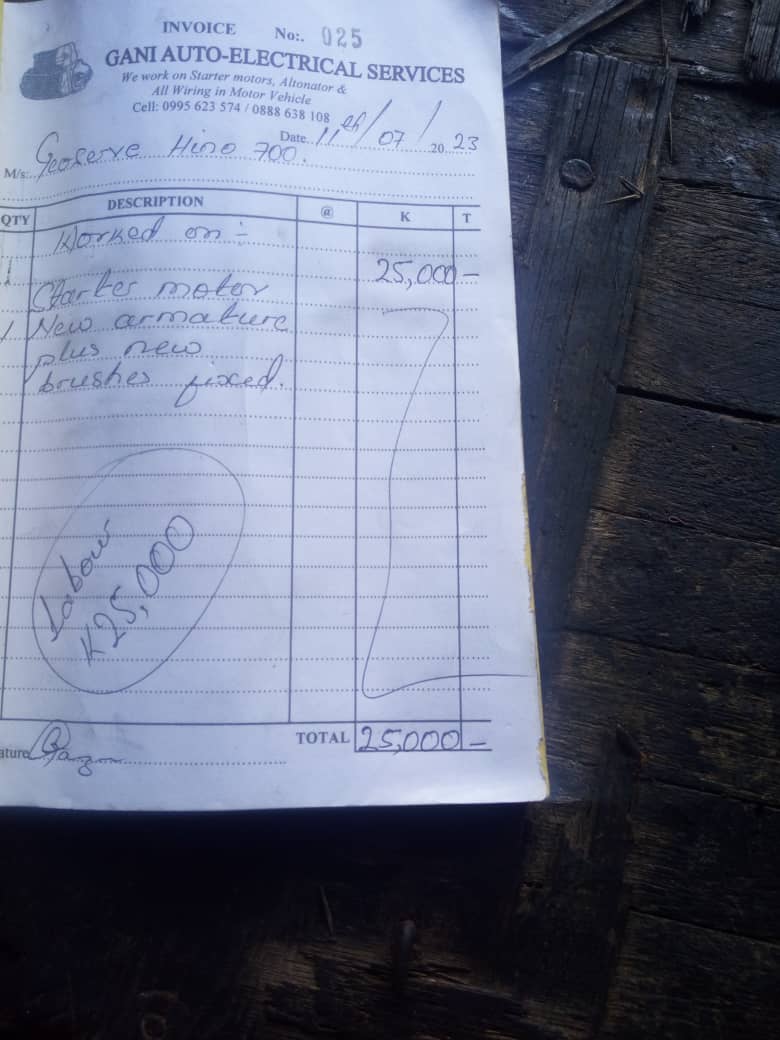 INVOICE No:. 025
GANI AUTO-ELECTRICAL SERVICES
We work on Starter motors, Altonator &
All Wiring in Motor Vehicle
Cell: 0995 623 574 / 0888 638 108
Date. 11th / 07 / 20 23
M/s: Geoserve Hino 700.
QTY DESCRIPTION @ K T
Worked on :-
1 25,000 -
Starter motor
1 New armature
plus new
brushes fixed.
Labour
K25,000
TOTAL 25,000 -
ature